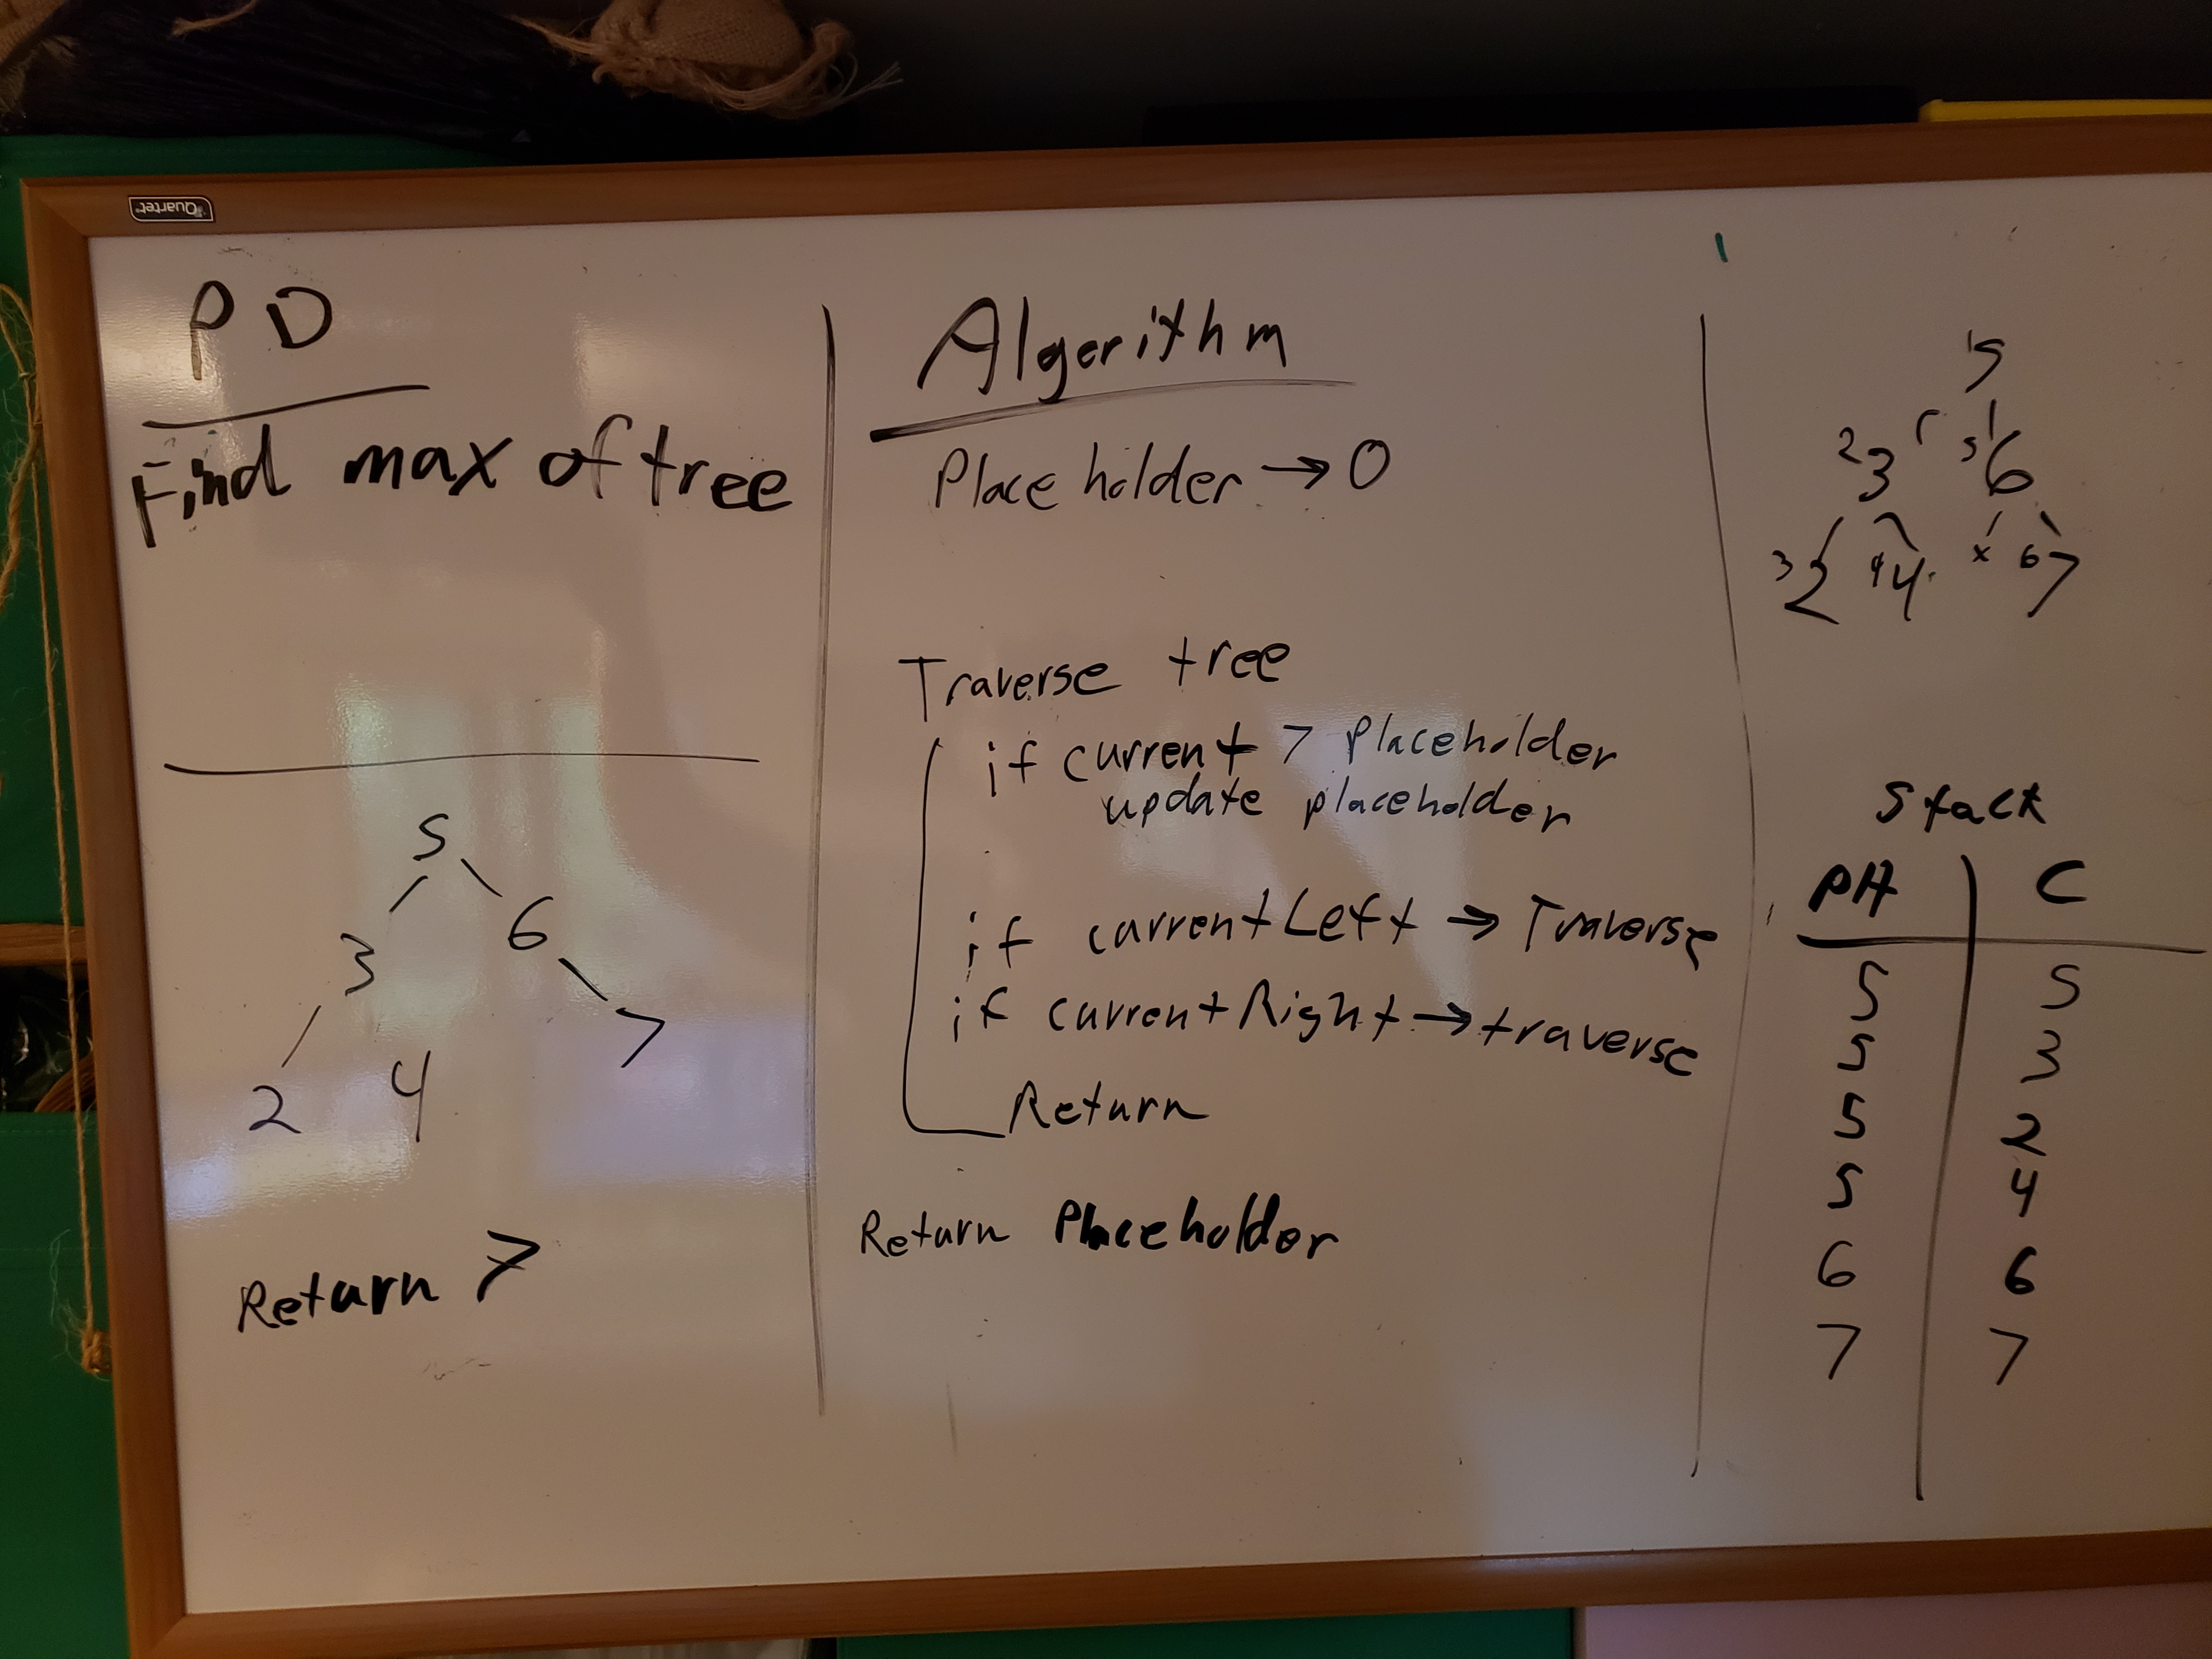 Quartet
PD
Find max of tree
5
3 6
2 4 7
Return 7
Algorithm
Place holder → 0
Traverse tree
if current > Placeholder
update placeholder
if currentLeft → Traverse
if currentRight → traverse
Return
Return Placeholder
1 5
2 3 5 6
3 2 4 4 x 6 7
Stack
PH C
5 5
5 3
5 2
5 4
6 6
7 7